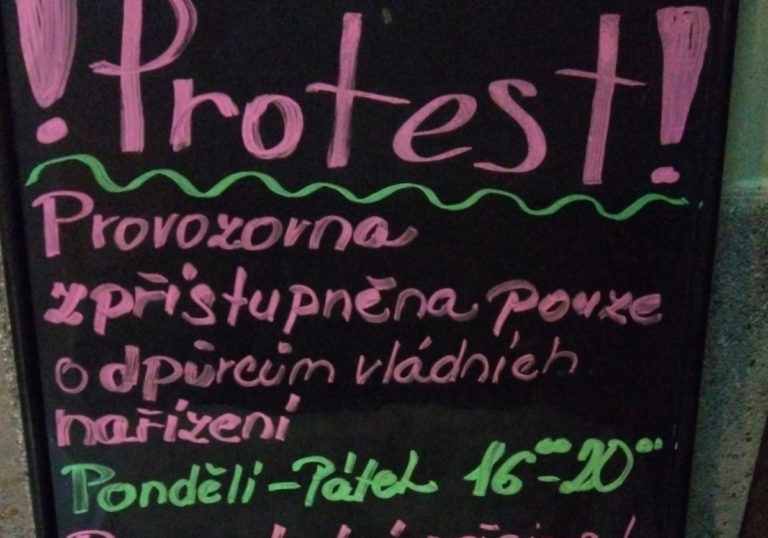 !Protest!
Provozovna
zpřístupněna pouze
odpůrcům vládních
nařízení
Pondělí - Pátek 16⁰⁰-20⁰⁰